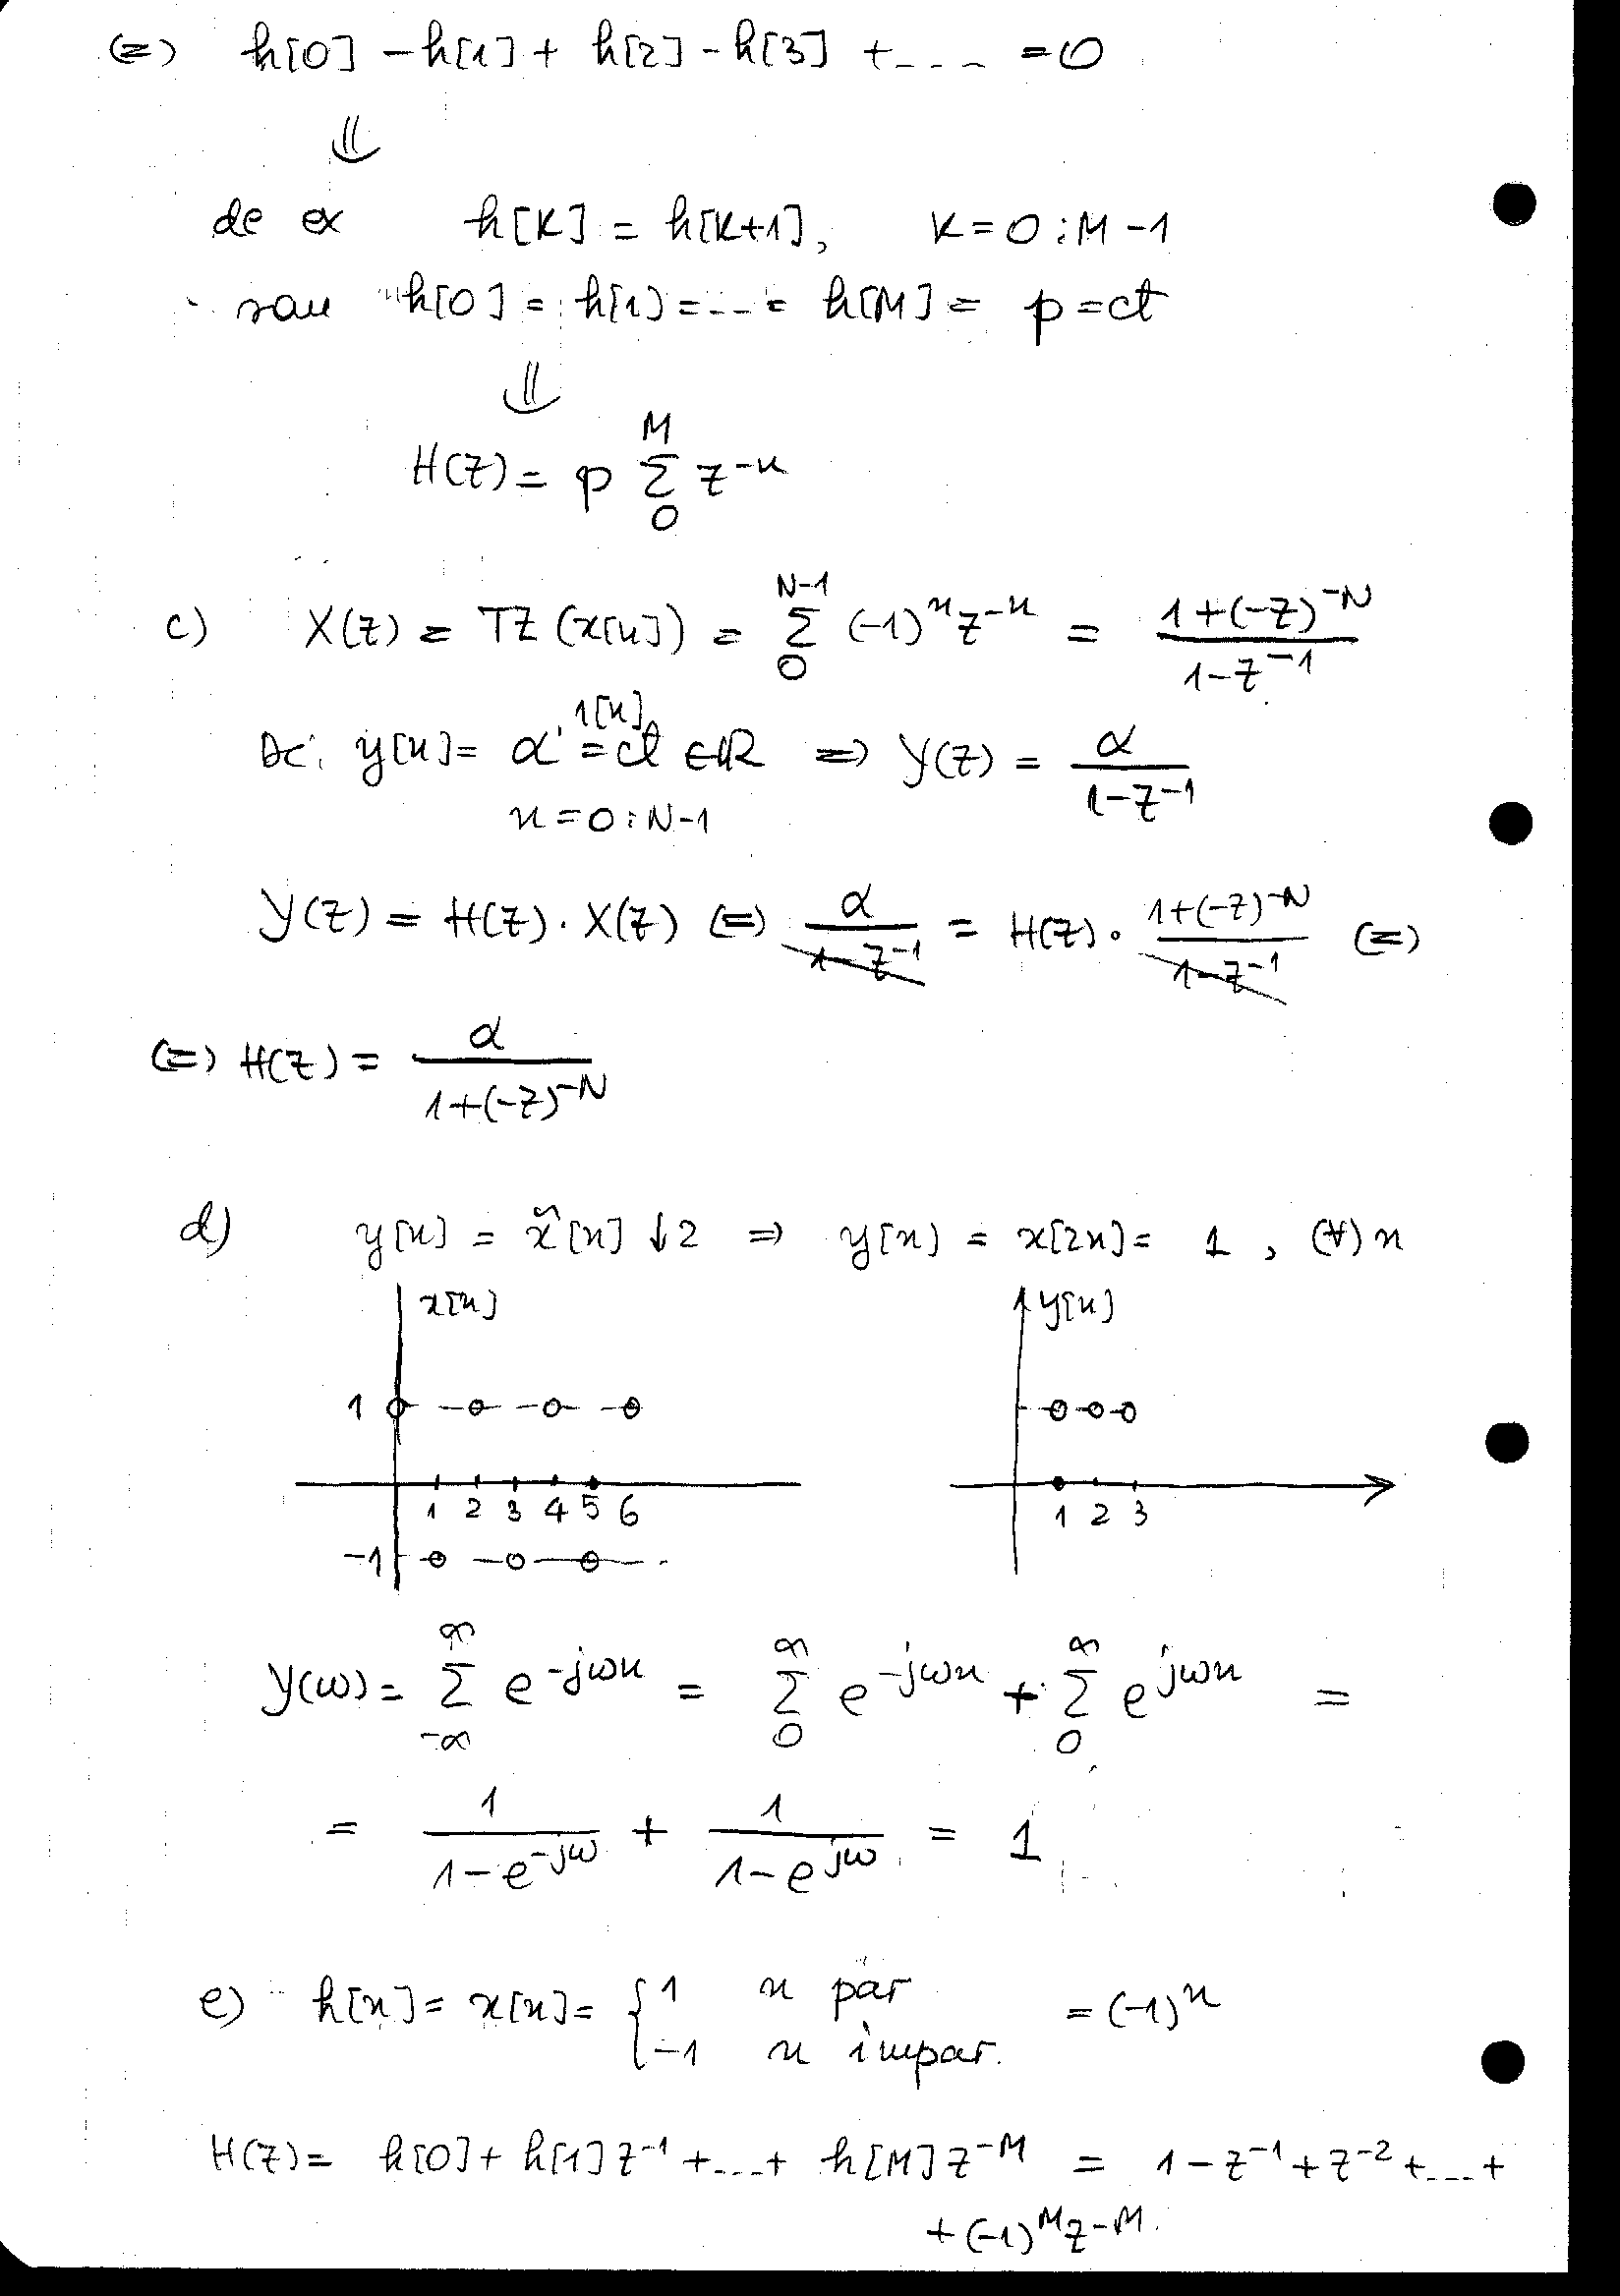 (=) h[0] - h[1] + h[2] - h[3] + ---- = 0
⇓
de ex h[k] = h[k+1], k = 0 : M-1
sau h[0] = h[1] = --- = h[M] = p = ct
⇓
H(z) = p Σ_0^M z^{-n}
c) X(z) = TZ(x[n]) = Σ_0^{N-1} (-1)^n z^{-n} = \frac{1+(-z)^{-N}}{1-z^{-1}}
Dc. y[n] = α 1[n] = ct ∈ ℝ ⇒ Y(z) = \frac{α}{1-z^{-1}}
n = 0 : N-1
Y(z) = H(z) · X(z) (=) \frac{α}{1-z^{-1}} = H(z) · \frac{1+(-z)^{-N}}{1-z^{-1}} (=)
(=) H(z) = \frac{α}{1+(-z)^{-N}}
d) y[n] = x̃[n] ↓2 ⇒ y[n] = x[2n] = 1 , (∀) n
x[n] y[n]
1
1 2 3 4 5 6 1 2 3
-1
Y(ω) = Σ_{-∞}^{∞} e^{-jωn} = Σ_0^{∞} e^{-jωn} + Σ_0^{∞} e^{jωn} =
= \frac{1}{1-e^{-jω}} + \frac{1}{1-e^{jω}} = 1
e) h[n] = x[n] = { 1 n par = (-1)^n
-1 n impar.
H(z) = h[0] + h[1] z^{-1} + --- + h[M] z^{-M} = 1 - z^{-1} + z^{-2} + --- +
+ (-1)^M z^{-M}.